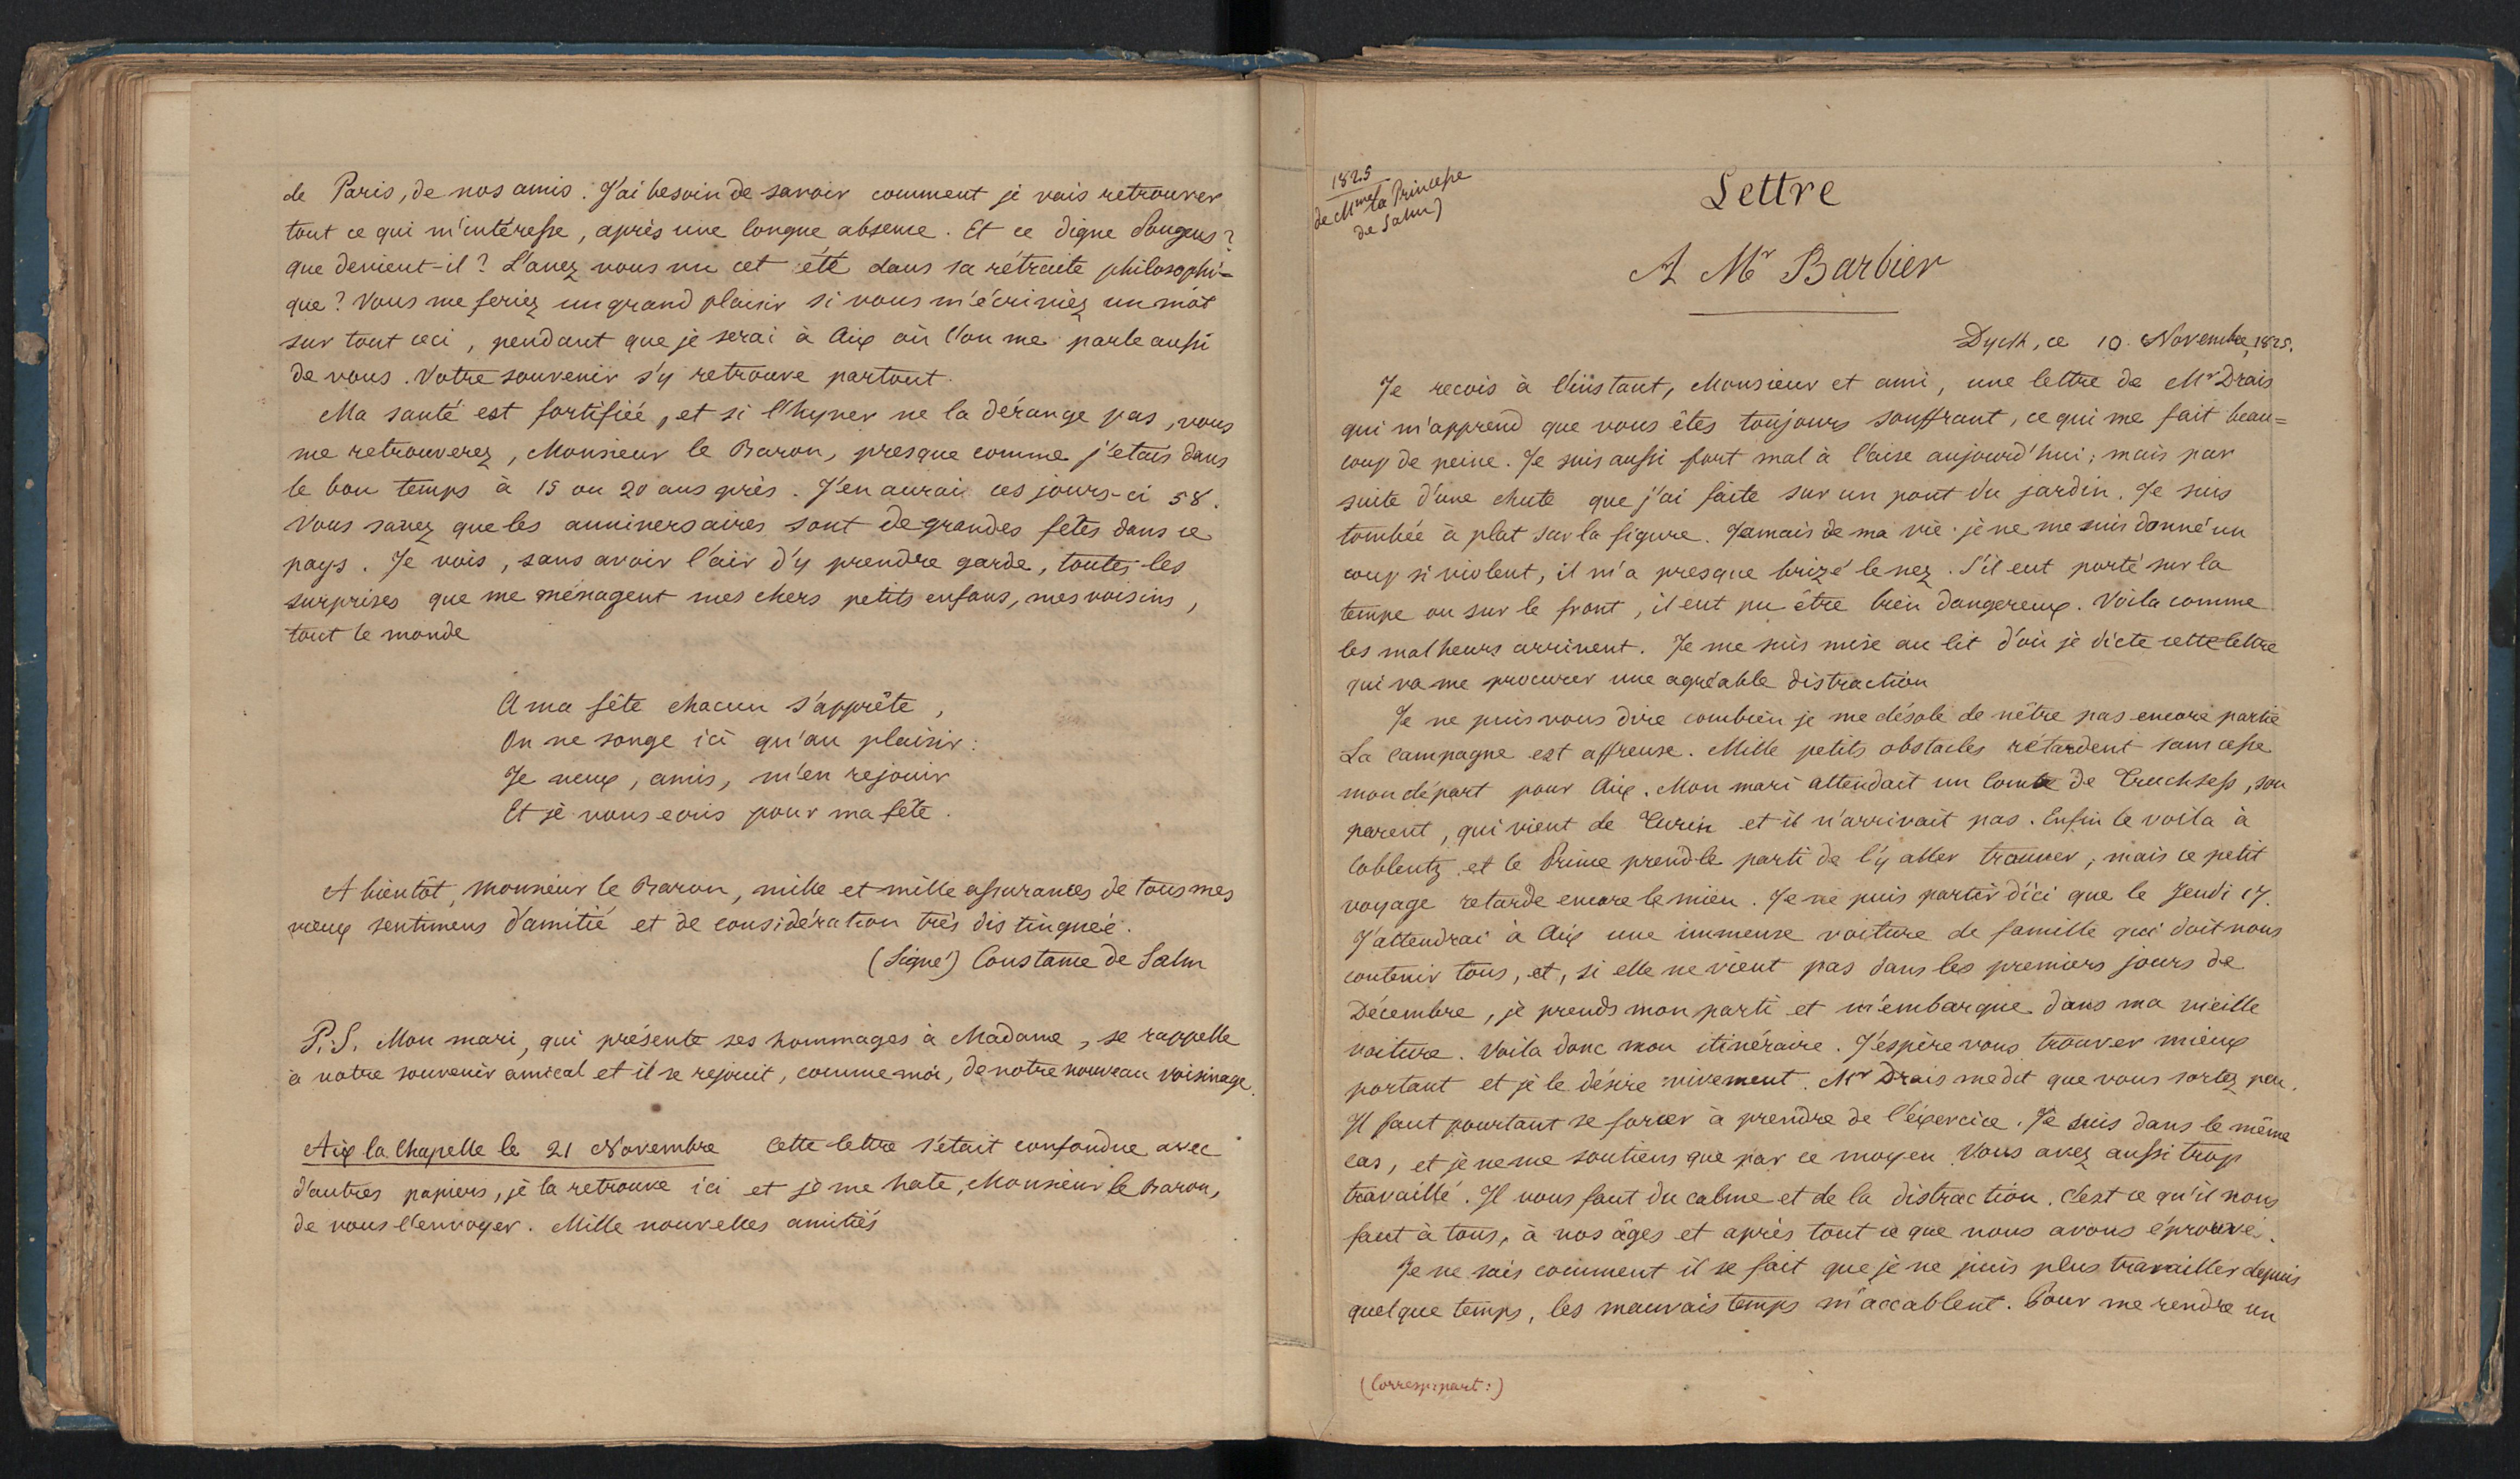 de Paris, de nos amis. J'ai besoin de savoir comment je vais retrouver
tout ce qui m'intéresse, après une longue absence. Et ce digne Pougens?
que devient-il? L'avez vous vu cet été dans sa rétraite philosophi-
que? Vous me feriez un grand plaisir si vous m'écriviez un mot
sur tout ceci, pendant que je serai à Aix où l'on me parle aussi
de vous. Votre souvenir s'y retrouve partout.
Ma santé est fortifiée, et si l'hyver ne la dérange pas, vous
me retrouverez, Monsieur le Baron, presque comme j'etais dans
le bon temps à 15 ou 20 ans près. J'en aurai ces jours-ci 58.
Vous savez que les anniversaires sont de grandes fêtes dans ce
pays. Je vois, sans avoir l'air d'y prendre garde, toutes les
surprises que me ménagent mes chers petits enfans, mes voisins,
tout le monde
A ma fête chacun s'apprête,
On ne songe ici qu'au plaisir:
Je veux, amis, m'en rejouir
Et je vous ecris pour ma fête.
A bientôt, monsieur le Baron, mille et mille assurances de tous mes
vieux sentimens d'amitié et de considération très distinguée.
(Signé) Constance de Salm
P.S. Mon mari, qui présente ses hommages à Madame, se rappelle
à votre souvenir amical et il se rejouit, comme moi, de notre nouveau voisinage.
Aix la Chapelle le 21 Novembre Cette lettre s'était confondue avec
d'autres papiers, je la retrouve ici et je me hate, Monsieur le Baron,
de vous l'envoyer. Mille nouvelles amitiés
1825
de Mme la Princesse
de Salm)
Lettre
A Mr Barbier
Dyck, ce 10 Novembre, 1825.
Je recois à l'instant, Monsieur et ami, une lettre de Mr Drais
qui m'apprend que vous êtes toujours souffrant, ce qui me fait beau=
coup de peine. Je suis aussi fort mal à l'aise aujourd'hui; mais par
suite d'une chute que j'ai faite sur un pont du jardin. Je suis
tombée à plat sur la figure. Jamais de ma vie je ne me suis donné un
coup si violent, il m'a presque brizé le nez. S'il eut porté sur la
tempe ou sur le front, il eut pu être bien dangereux. Voila comme
les malheurs arrivent. Je me suis mise au lit d'où je dicte cette lettre
qui va me procurer une agréable distraction
Je ne puis vous dire combien je me désole de n'être pas encore partie
La campagne est affreuse. Mille petits obstacles rétardent sans cesse
mon départ pour Aix. Mon mari attendait un Comte de Truchsess, son
parent, qui vient de Turin et il n'arrivait pas. Enfin le voila à
Coblentz et le Prince prend le parti de l'y aller trouver; mais ce petit
voyage retarde encore le mien. Je ne puis partir d'ici que le Jeudi 17.
J'attendrai à Aix une immense voiture de famille qui doit nous
contenir tous, et, si elle ne vient pas dans les premiers jours de
Décembre, je prends mon parti et m'embarque dans ma vieille
voiture. Voila donc mon itinéraire. J'espère vous trouver mieux
portant et je le désire vivement. Mr Drais me dit que vous sortez peu.
Il faut pourtant se forcer à prendre de l'éxercice. Je suis dans le même
cas, et je ne me soutiens que par ce moyen. Vous avez aussi trop
travaillé. Il vous faut du calme et de la distraction. C'est ce qu'il nous
faut à tous, à nos âges et après tout ce que nous avons éprouvé.
Je ne sais comment il se fait que je ne puis plus travailler depuis
quelque temps, les mauvais temps m'accablent. Pour me rendre un
(Corresp: part:)